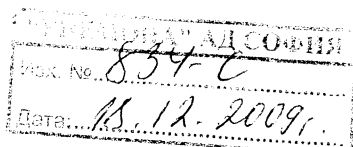 АД СОФИЯ
Изх. № 834-С
Дата: 18.12.2009г.